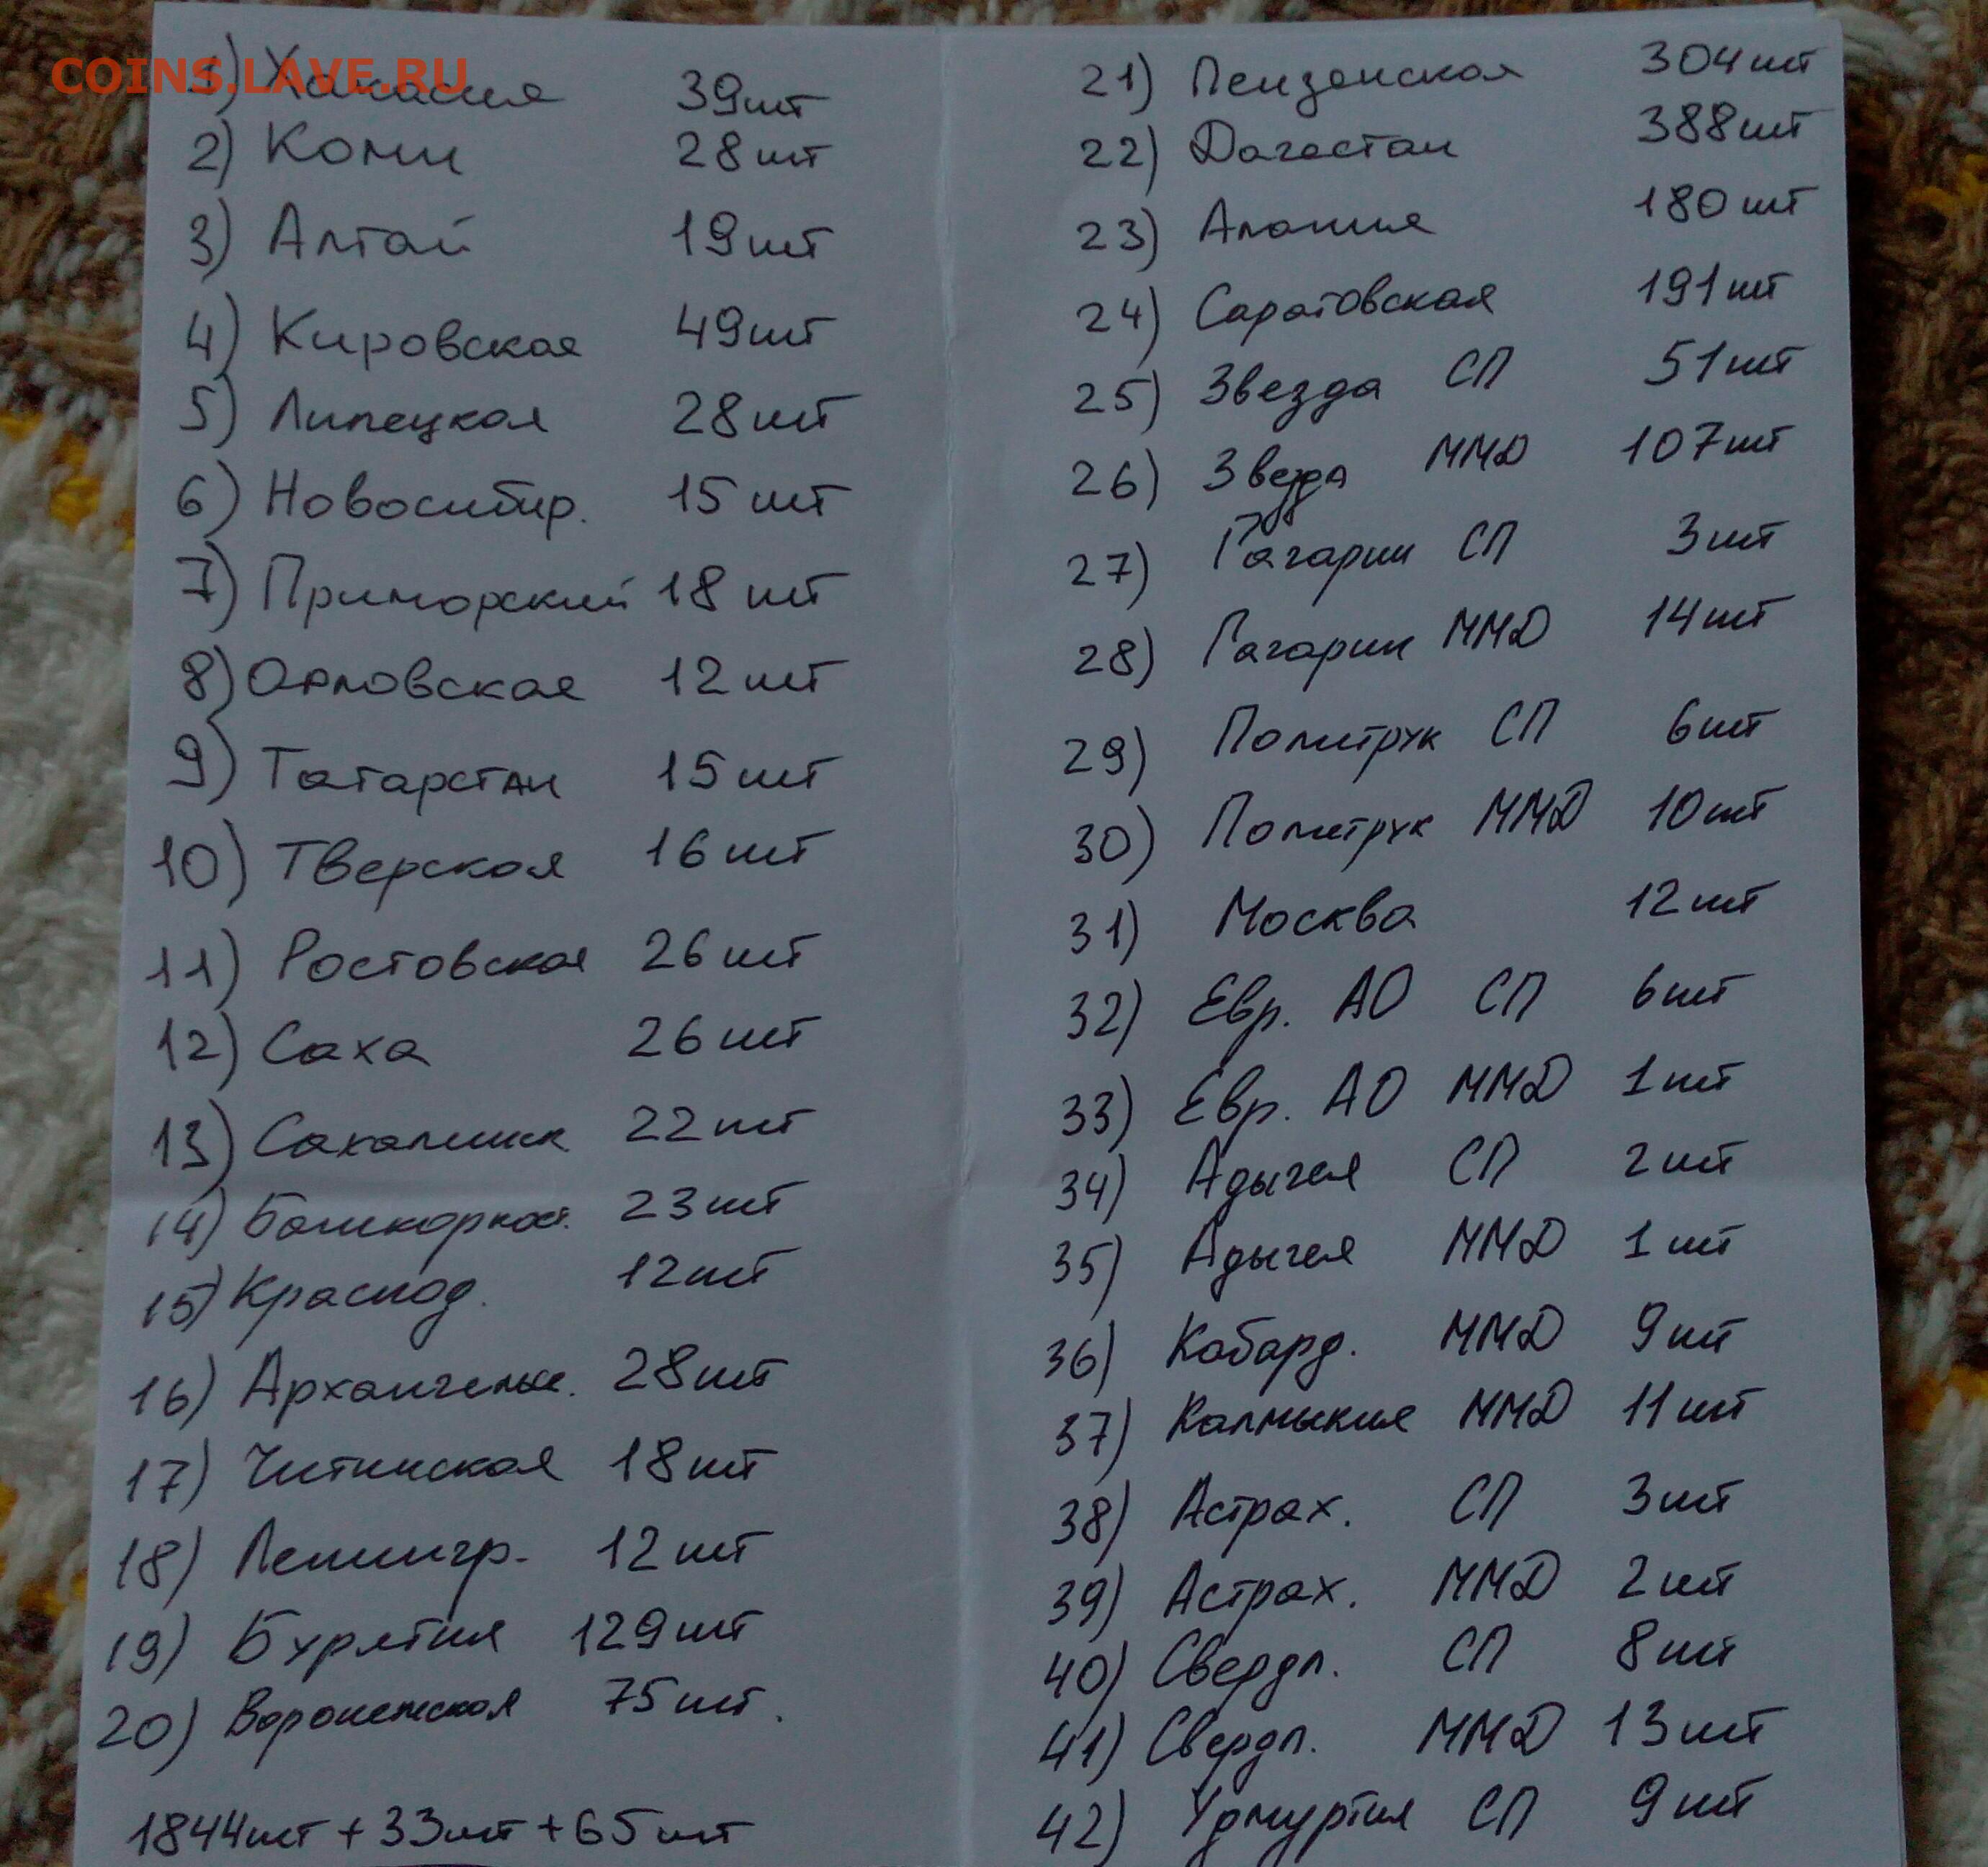 COINS.LAVE.RU
1) Хакасия 39шт
2) Коми 28шт
3) Алтай 19шт
4) Кировская 49шт
5) Липецкая 28шт
6) Новосибир. 15шт
7) Приморский 18шт
8) Орловская 12шт
9) Татарстан 15шт
10) Тверская 16шт
11) Ростовская 26шт
12) Саха 26шт
13) Сахалинск 22шт
14) Башкорост. 23шт
15) Краснод. 12шт
16) Архангельс. 28шт
17) Читинская 18шт
18) Ленингр. 12шт
19) Бурятия 129шт
20) Воронежская 75шт.
1844шт + 33шт + 65шт
21) Пензенская 304шт
22) Дагестан 388шт
23) Алания 180шт
24) Саратовская 191шт
25) Звезда СП 51шт
26) Звезда ММД 107шт
27) Гагарин СП 3шт
28) Гагарин ММД 14шт
29) Политрук СП 6шт
30) Политрук ММД 10шт
31) Москва 12шт
32) Евр. АО СП 6шт
33) Евр. АО ММД 1шт
34) Адыгея СП 2шт
35) Адыгея ММД 1шт
36) Кабард. ММД 9шт
37) Калмыкия ММД 11шт
38) Астрах. СП 3шт
39) Астрах. ММД 2шт
40) Свердл. СП 8шт
41) Свердл. ММД 13шт
42) Удмуртия СП 9шт